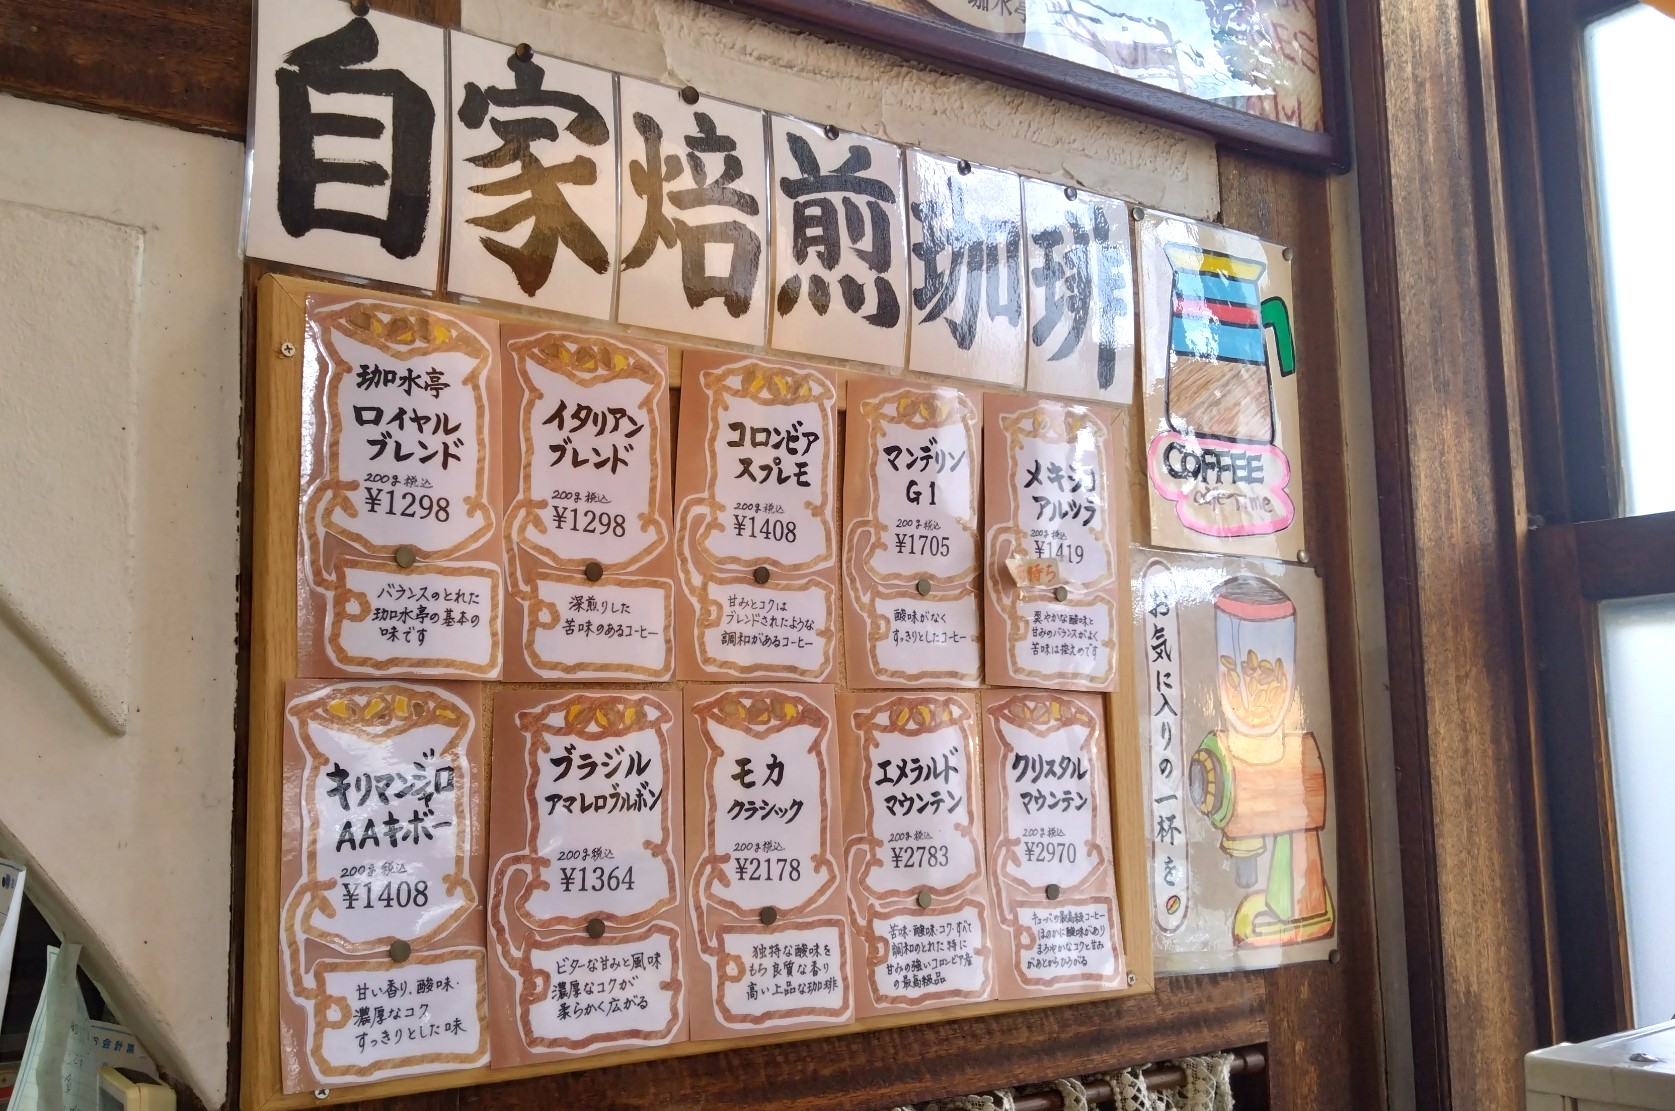 自家焙煎珈琲
珈水亭
ロイヤル
ブレンド
200g税込
¥1298
バランスのとれた
珈水亭の基本の
味です
イタリアン
ブレンド
200g税込
¥1298
深煎りした
苦味のあるコーヒー
コロンビア
スプレモ
200g税込
¥1408
甘みとコクは
ブレンドされたような
調和があるコーヒー
マンデリン
G1
200g税込
¥1705
酸味がなく
すっきりとしたコーヒー
メキシコ
アルツラ
200g税込
¥1419
待ち
爽やかな酸味と
甘みのバランスがよく
苦味は控えめです
キリマンジャロ
AAキボー
200g税込
¥1408
甘い香り、酸味・
濃厚なコク
すっきりとした味
ブラジル
アマレロブルボン
200g税込
¥1364
ビターな甘みと風味
濃厚なコクが
柔らかく広がる
モカ
クラシック
200g税込
¥2178
独特な酸味を
もち良質な香り
高い上品な珈琲
エメラルド
マウンテン
200g税込
¥2783
苦味・酸味・コク・すべて
調和のとれた特に
甘みの強いコロンビア産
の最高級品
クリスタル
マウンテン
200g税込
¥2970
キューバの最高級コーヒー
ほのかに酸味があり
まろやかなコクと甘み
があとからひろがる
COFFEE
cafeTime
お気に入りの一杯を
会計票